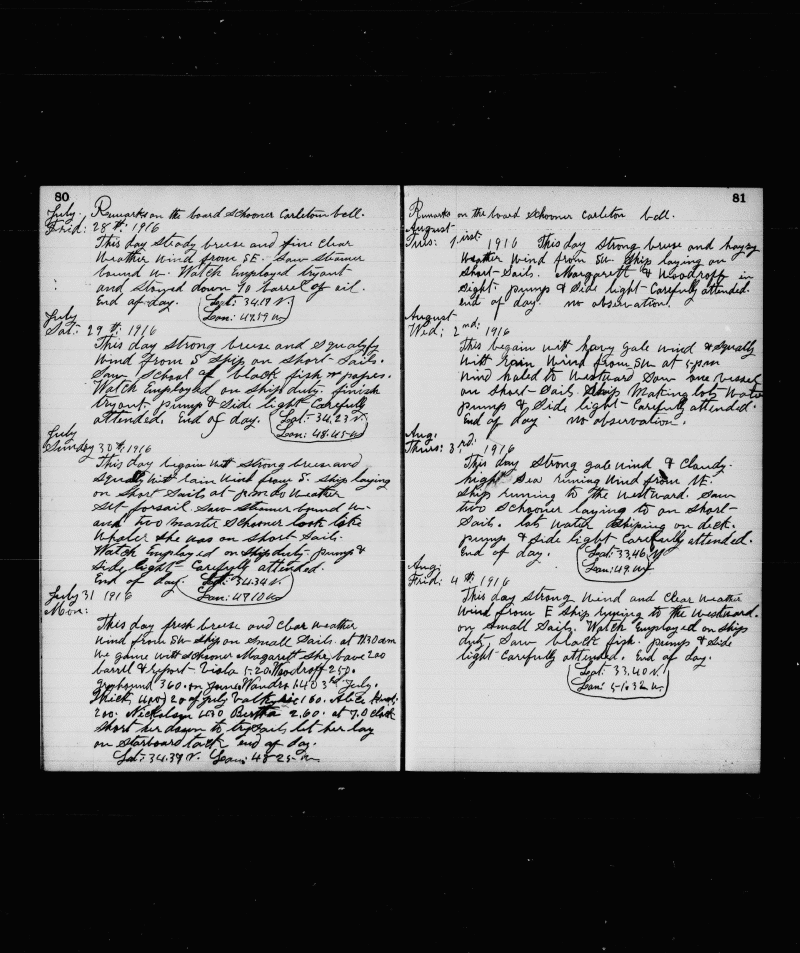 80
July. Remarks on the board Schooner Carleton bell.
Frid: 28th. 1916
This day Steady breese and fine clear
Weather Wind from SE. Saw Steamer
bound W. Watch Employed tryant
and Stowed down 90 barrel of oil.
End of day.
Lat: 34.17 N.
Lon: 47.59 W
July
Sat: 29th. 1916
This day Strong breese and Squalyfs
Wind From S Ship on Short Sails.
Saw School of black fish &
Watch Employed on Ship duty finish
tryant. pump & Side light Carefully
attended. End of day.
Lat: 34.23 N.
Lon: 48.45 W
July
Sunday 30th. 1916
This day begain Witt Strong breese and
Squally Witt rain Wind from S. Ship laying
on Short Sails at pm do Weather
Set forsail. Saw Steamer bound W
and two master Schooner look like
Whaler She was on Short Sails.
Watch Employed on Ship duty pump &
Side light Carefully attended.
End of day.
Lat: 34.34 N.
Lon: 47.10 W
July 31 1916
Mon:
This day fresh breese and Clear Weather
Wind from SW Ship on Small Sails. at 11.30 am
We gamie Witt Schooner Magarett She have 200
barrel & report Viola 520. Woodroff 250.
360. on 3rd July.
20 of July 160. Alice
200. Nickolson 400 Bertha 260. at 7.0 clock
Short her down to trysails let her lay
on Starboard tack end of day.
Lat: 34.39 N. Lon: 48 25 W
81
Remarks on the board Schooner Carleton bell.
August
Tues: 1.irst. 1916 This day Strong breese and haysy
Weather Wind from SW Ship laying on
Short Sails. Margarett & Woodroff in
Sight. pump & Side light Carefully attended.
End of day. no observation.
August
Wed; 2nd: 1916
This begain Witt havy gale Wind & Squally
Witt Rain Wind from SW at 5 pm
Wind haled to Westward Saw one Vessel
on Short Sails Ship Making lots Water
pump & Side light Carefully attended.
End of day no observation.
Aug.
Thurs: 3rd: 1916
This day Strong gale Wind & Claudy.
high Sea runing Wind from NE.
Ship runing to the Westward. Saw
two Schooner laying to on Short
Sails. lots Water Shiping on deck.
pump & Side light Carefully attended.
End of day.
Lat: 33.46 N
Lon: 49. W
Aug;
Frid: 4th: 1916
This day Strong Wind and Clear Weather
Wind from E Ship runing to the Westward.
on Small Sails. Watch Employed on Ship
duty Saw black fish. pump & Side
light Carefully attended. End of day.
Lat: 33.40 N.
Lon: 51.32 W.